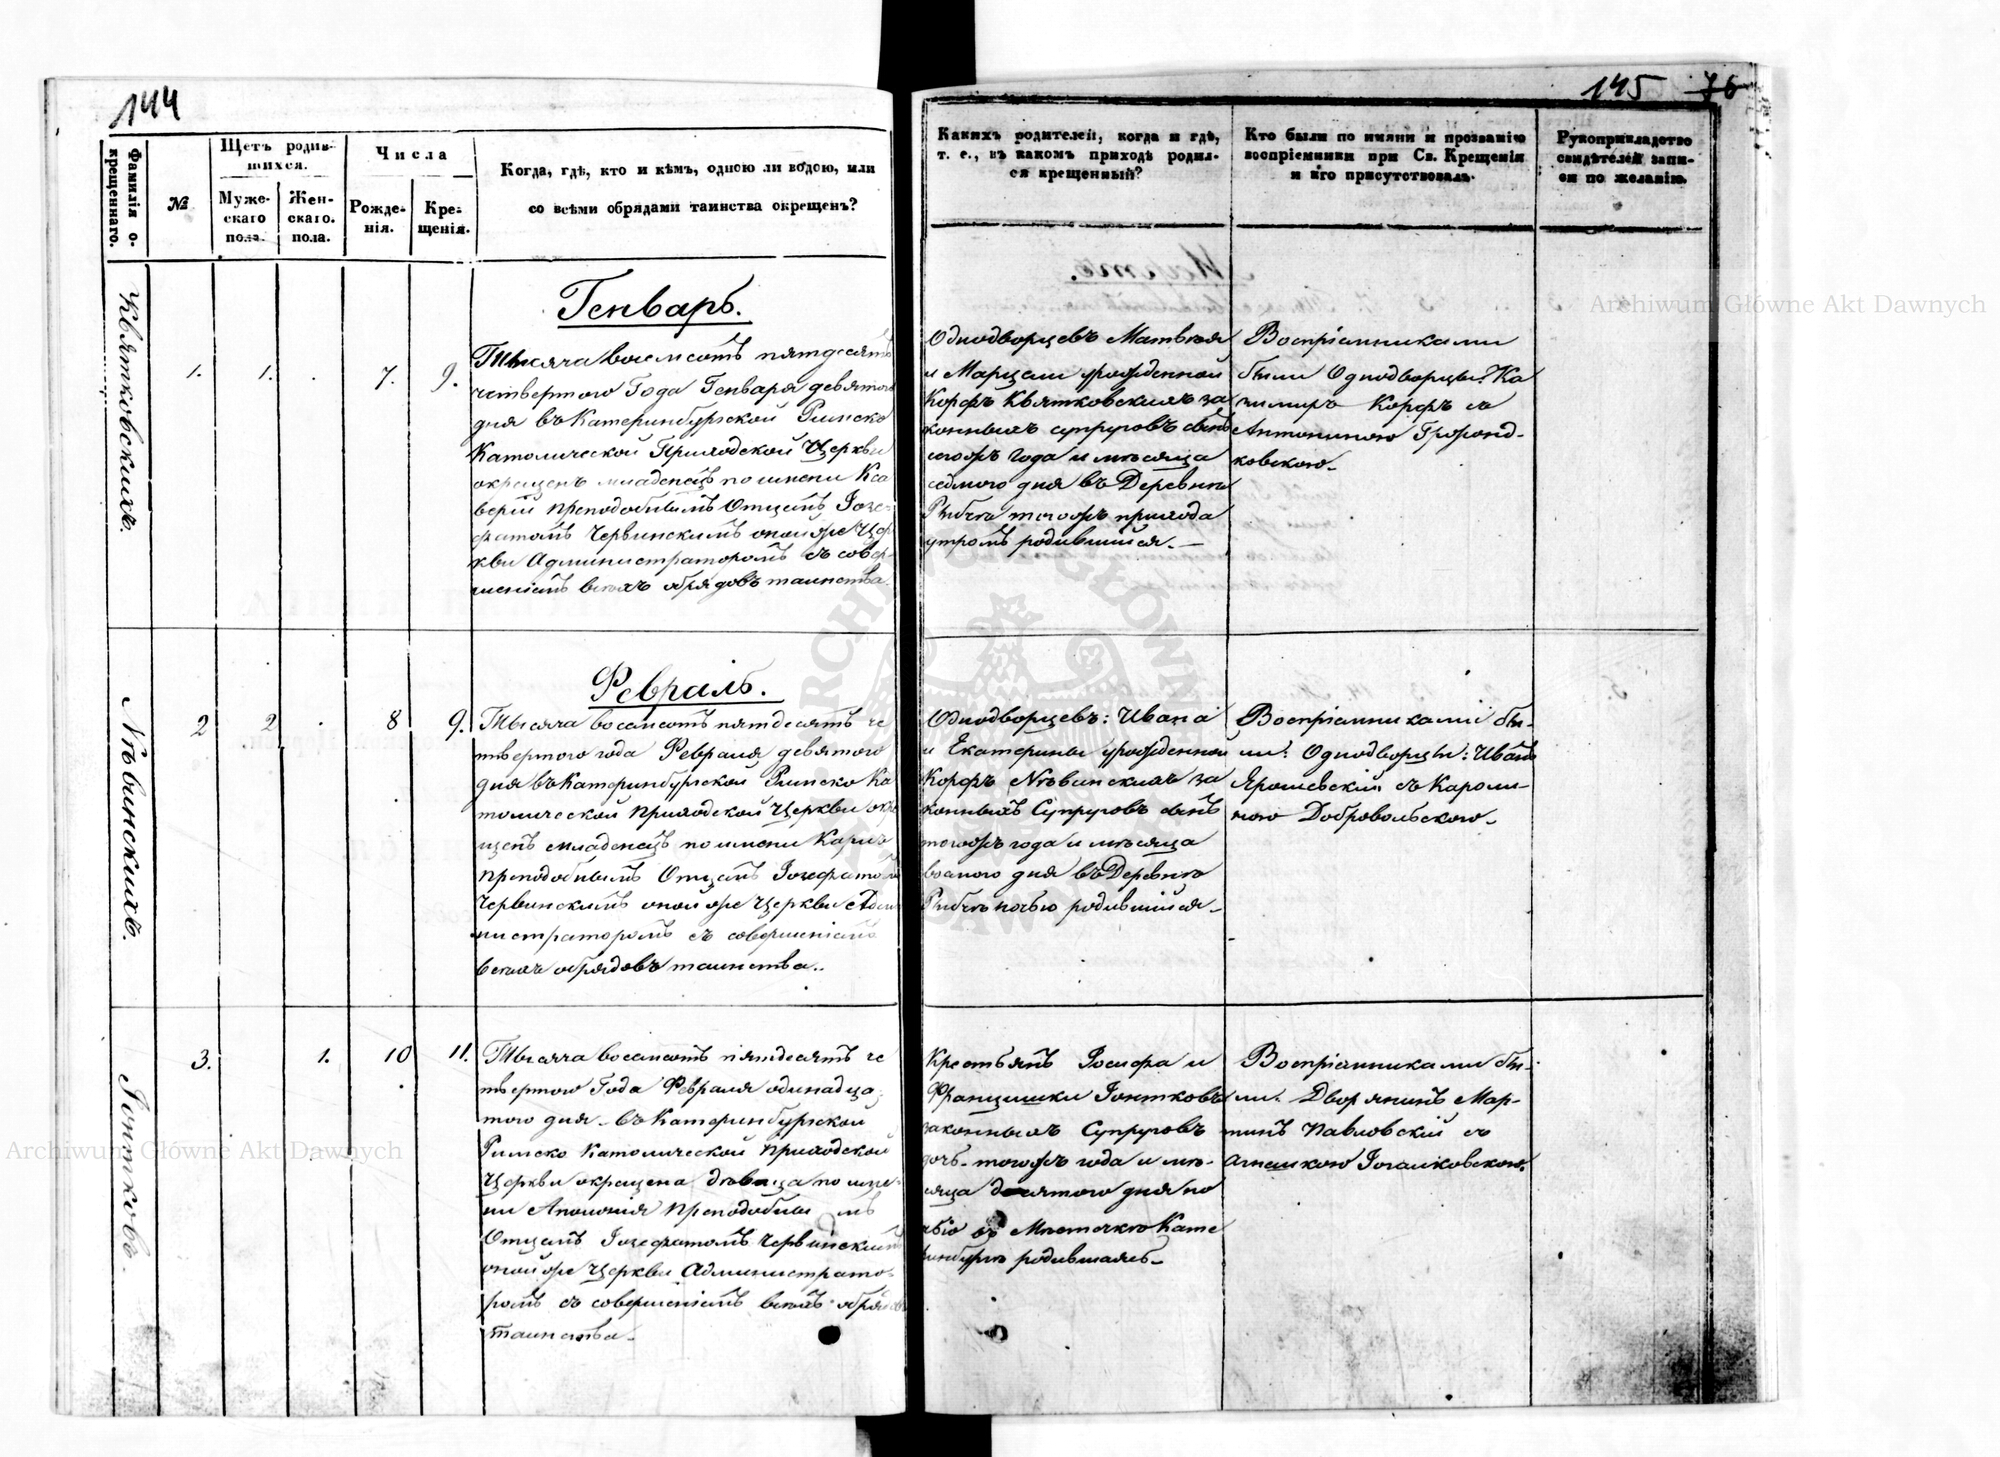 144
Фамилія о-
крещеннаго.
№
Щетъ родив-
шихся.
Муже-
скаго
пола.
Жен-
скаго.
пола.
Числа
Рожде-
нія.
Кре-
щенія.
Когда, гдѣ, кто и кѣмъ, одною ли водою, или
со всѣми обрядами таинства окрещенъ?
Квятковскихъ.
1.
1.
.
7.
9.
Генварь.
Тысяча восемсотъ пятдесятъ
четвертого Года Генваря девятого
дня въ Катеринбургской Римско
Католической Приходской Церкви
окрещенъ младенецъ по имени Кса
верій преподобнымъ Отцемъ Іозе-
фатомъ Червинскимъ оной же Цер
кви Администраторомъ съ совер-
шеніемъ всехъ обрядовъ таинства.
Нѣвинскихъ.
2
2
.
8
9.
Февраль.
Тысяча восемсотъ пятдесятъ че
твертого года Февраля девятого
дня въ Катеринбургской Римско Ка
толической Приходской Церкви окре
щенъ младенецъ по имени
преподобнымъ Отцемъ Іозефатомъ
Червинскимъ оной же Церкви Адми
нистраторомъ съ совершеніемъ
всехъ обрядовъ таинства..
Іонтковъ.
3.
1.
10
11.
Тысяча восемсотъ пятдесятъ че
твертого Года Февраля одинадца-
того дня въ Катеринбургской
Римско Католической Приходской
Церкви окрещена девица по име-
ни Аполонія Преподобнымъ
Отцемъ Іозефатомъ Червинскимъ
оной же Церкви Администрато-
ромъ съ совершеніемъ всехъ обрядовъ
таинства.
145 76
Какихъ родителей, когда и гдѣ,
т. е., въ какомъ приходѣ родил-
ся крещенный?
Кто были по имяни и прозванію
воспріемники при Св. Крещеніи
и кто присутствовалъ.
Рукоприкладство
свидѣтелей запи-
си по желанію.
Однодворцевъ Матвѣя
и Марцели урожденной
Корфъ Квятковскихъ за
конныхъ супруговъ сынъ
тогожъ года и мѣсяца
седмого дня въ Деревнѣ
Рыбчѣ тогожъ прихода
утромъ родившийся.
Воспріемниками
были Однодворцы: Ка
зимиръ Корфъ съ
Антониною
ковскою.
Однодворцевъ: Ивана
и Екатерины урожденной
Корфъ Нѣвинскихъ за
конныхъ Супруговъ сынъ
тогожъ года и мѣсяца
восмого дня въ Деревнѣ
Рыбчѣ ночью родившийся.
Воспріемниками бы-
ли: Однодворцы: Иванъ
Ярошевскій съ Кароли-
ною Добровольскою.
Крестьянъ Іосифа и
Францишки Іонтковъ
законныхъ Супруговъ
дочь тогожъ года и мѣ-
сяца десятого дня но
чью въ Мѣстечкѣ Кате
ринбургѣ родившаясь.
Воспріемниками бы-
ли: Дворянинъ Мар-
тинъ Павловскій съ
Агнешкою
Archiwum Główne Akt Dawnych
Archiwum Główne Akt Dawnych